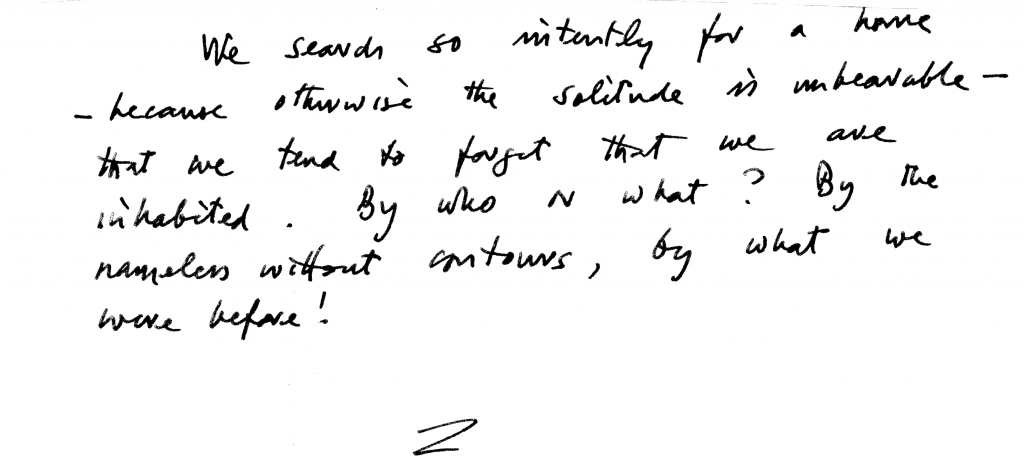 We search so intently for a home
- because otherwise the solitude is unbearable -
that we tend to forget that we are
inhabited. By who or what? By the
nameless without contours, by what we
were before!
Z